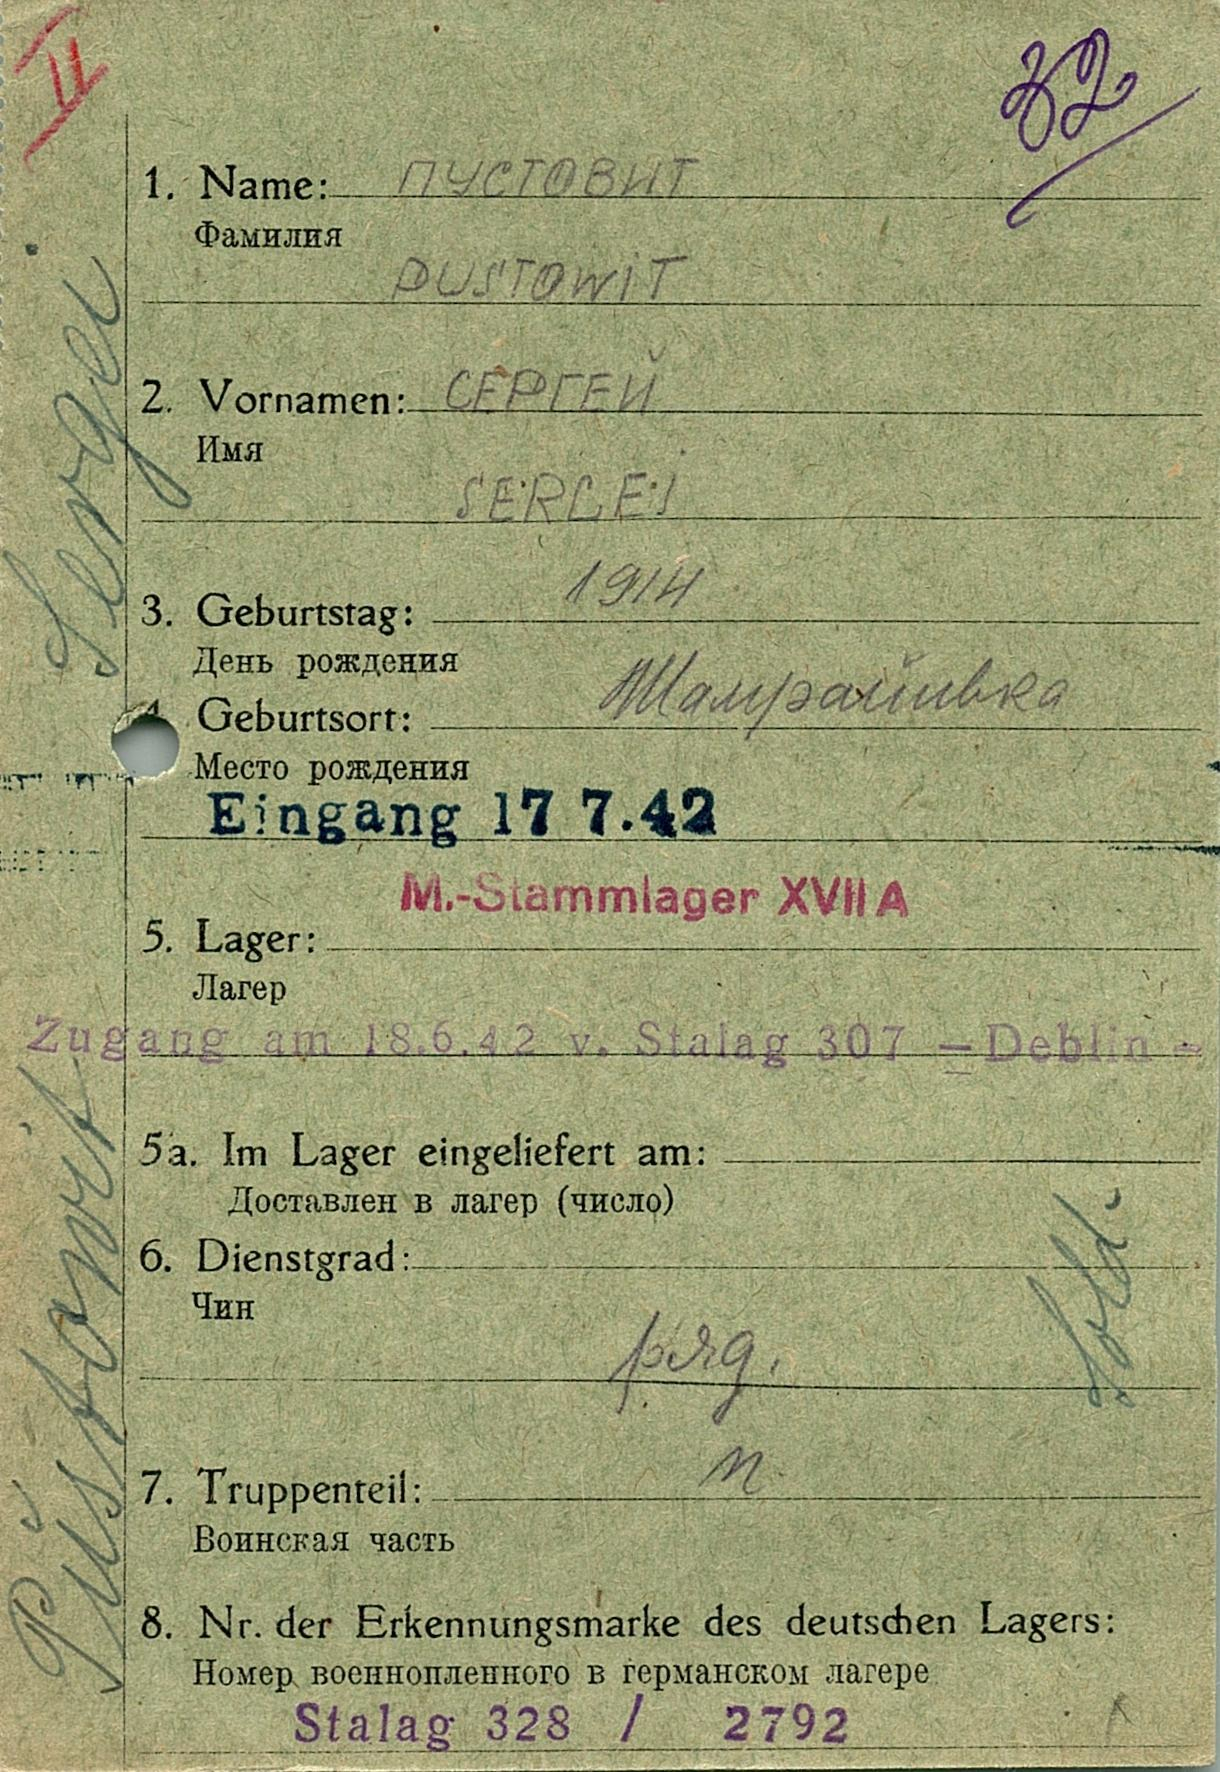 II
32
1. Name: ПУСТОВИТ
Фамилия
PUSTOWIT
2. Vornamen: СЕРГЕЙ
Имя
SERGEJ
3. Geburtstag: 1914
День рождения
4. Geburtsort: Шамрайивка
Место рождения
Eingang 17 7.42
M.-Stammlager XVII A
5. Lager:
Лагер
Zugang am 18.6.42 v. Stalag 307 – Deblin –
5a. Im Lager eingeliefert am:
Доставлен в лагер (число)
6. Dienstgrad:
Чин
ряд.
Sold.
7. Truppenteil:
Воинская часть
8. Nr. der Erkennungsmarke des deutschen Lagers:
Номер военнопленного в германском лагере
Stalag 328 / 2792
Pustowit Sergei